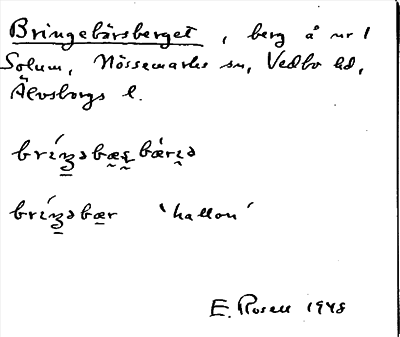 Bringebärsberget, berg å nr 1
Solum, Nössemarks sn, Vedbo hd,
Älvsborgs l.
bríʒ̱əbæ̱ʂ̱bǽri̱ə
bríʒ̱əbæ̱r 'hallon'
E. Rosell 1948